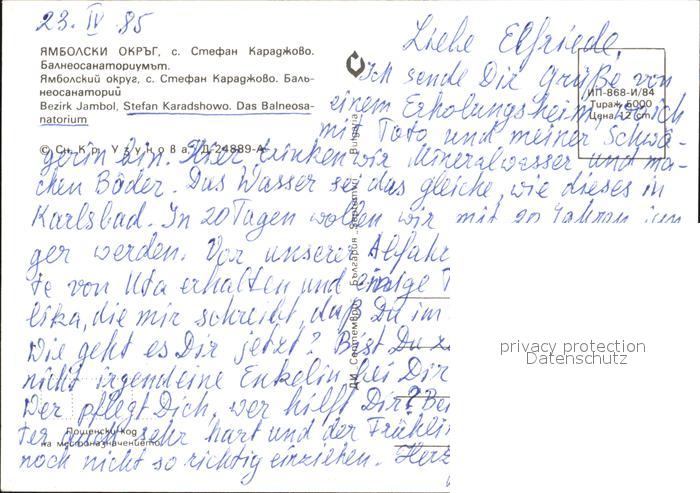 23. IV 85
ЯМБОЛСКИ ОКРЪГ, с. Стефан Караджово.
Балнеосанаториумът.
Ямболский округ, с. Стефан Караджово. Баль-
неосанаторий
Bezirk Jambol, Stefan Karadshowo. Das Balneosa-
natorium
© Сн. Кр. Узунова, ЯД-24889-А
ИП-868-И/84
Тираж 5000
Цена 12 cm
ДИ „Септември" България „Septemvri" Bulgaria
Liebe Elfriede,
Ich sende Dir Grüße von
einem Erholungsheim, wo ich
mit Toto und meiner Schwä-
gerin bin. Hier trinken wir Mineralwasser und ma-
chen Bäder. Das Wasser sei das gleiche, wie dieses in
Karlsbad. In 20 Tagen wollen wir mit 20 Jahren jün
ger werden. Vor unserer Abfahr
te von Uta erhalten und einige
lika, die mir schreibt, daß Du im
Wie geht es Dir jetzt? Bist Du
nicht irgendeine Enkelin bei Dir
Wer pflegt Dich, wer hilft Dir? Bei
ter auch sehr hart und der Frühlin
noch nicht so richtig einziehen. Herz
Пощенски код
на местоназначението
privacy protection
Datenschutz